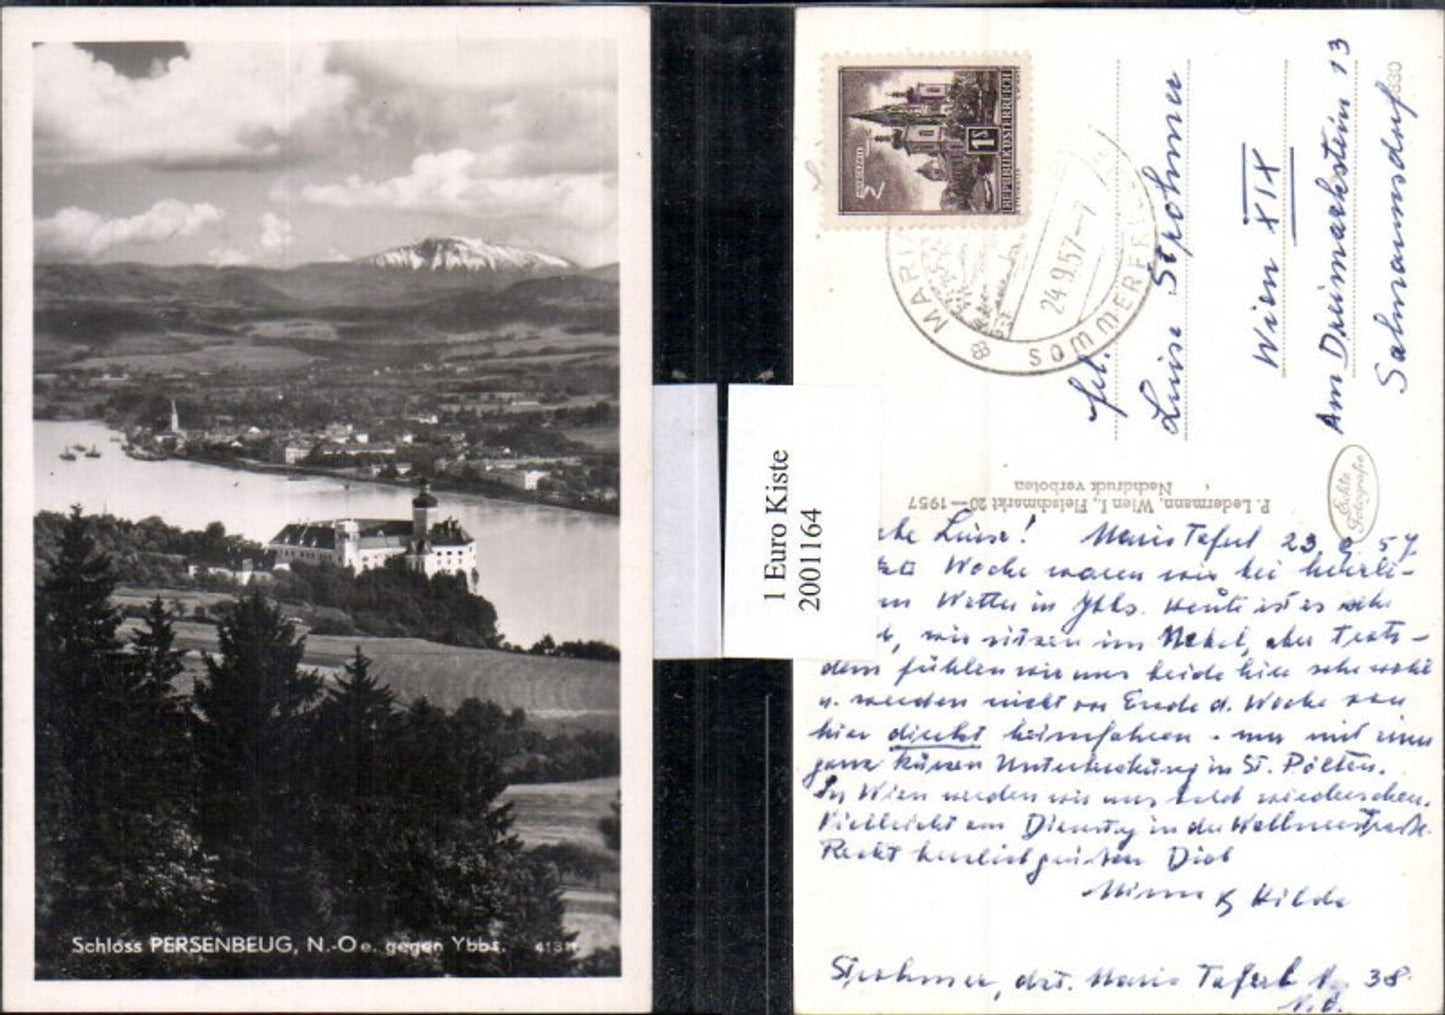 Schloss PERSENBEUG, N.-Oe. gegen Ybbs.
1 Euro Kiste
2001164
REPUBLIK ÖSTERREICH
1S
MARIA
24.9.57-7
SOMMERFRI
Frl.
Luise Spohmer
Wien XIX
Am Dreimarkstein 13
Salmannsdorf
330
P. Ledermann, Wien I., Fleischmarkt 20—1957
Nachdruck verboten
Echte
Fotografie
Luise! Maria Taferl 23.9.57
Woche waren wir bei herrli-
Wetter in Ybbs. Heute ist es sehr
wir sitzen im Nebel, aber trotz-
dem fühlen wir uns beide hier sehr wohl
u. werden nicht vor Ende d. Woche von
hier direkt heimfahren - nur mit einer
ganz kurzen Unterbrechung in St. Pölten.
In Wien werden wir uns bald wiedersehen.
Vielleicht am Dienstag in der
Recht herzlich grüßen Dich
Hilde
Spohmer, dzt. Maria Taferl Nr. 38
N.Ö.